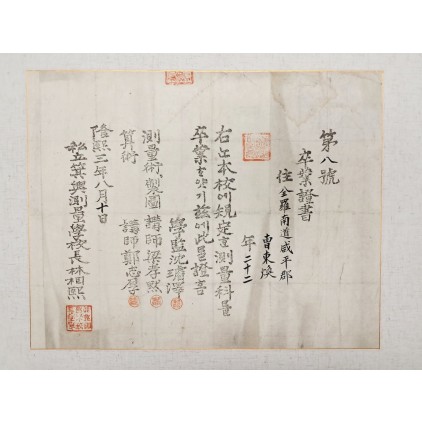 第八號
卒業證書
住 全羅南道咸平郡
曺東煥
年 二十二
右人本校에規定ᄒᆞᆫ測量科를
卒業ᄒᆞ얏기玆에此를證홈
學監 沈璿澤
測量術製圖 講師 梁孝默
算術 講師 鄭志厚
隆熙三年八月十日
私立箕興測量學校長 林相熙